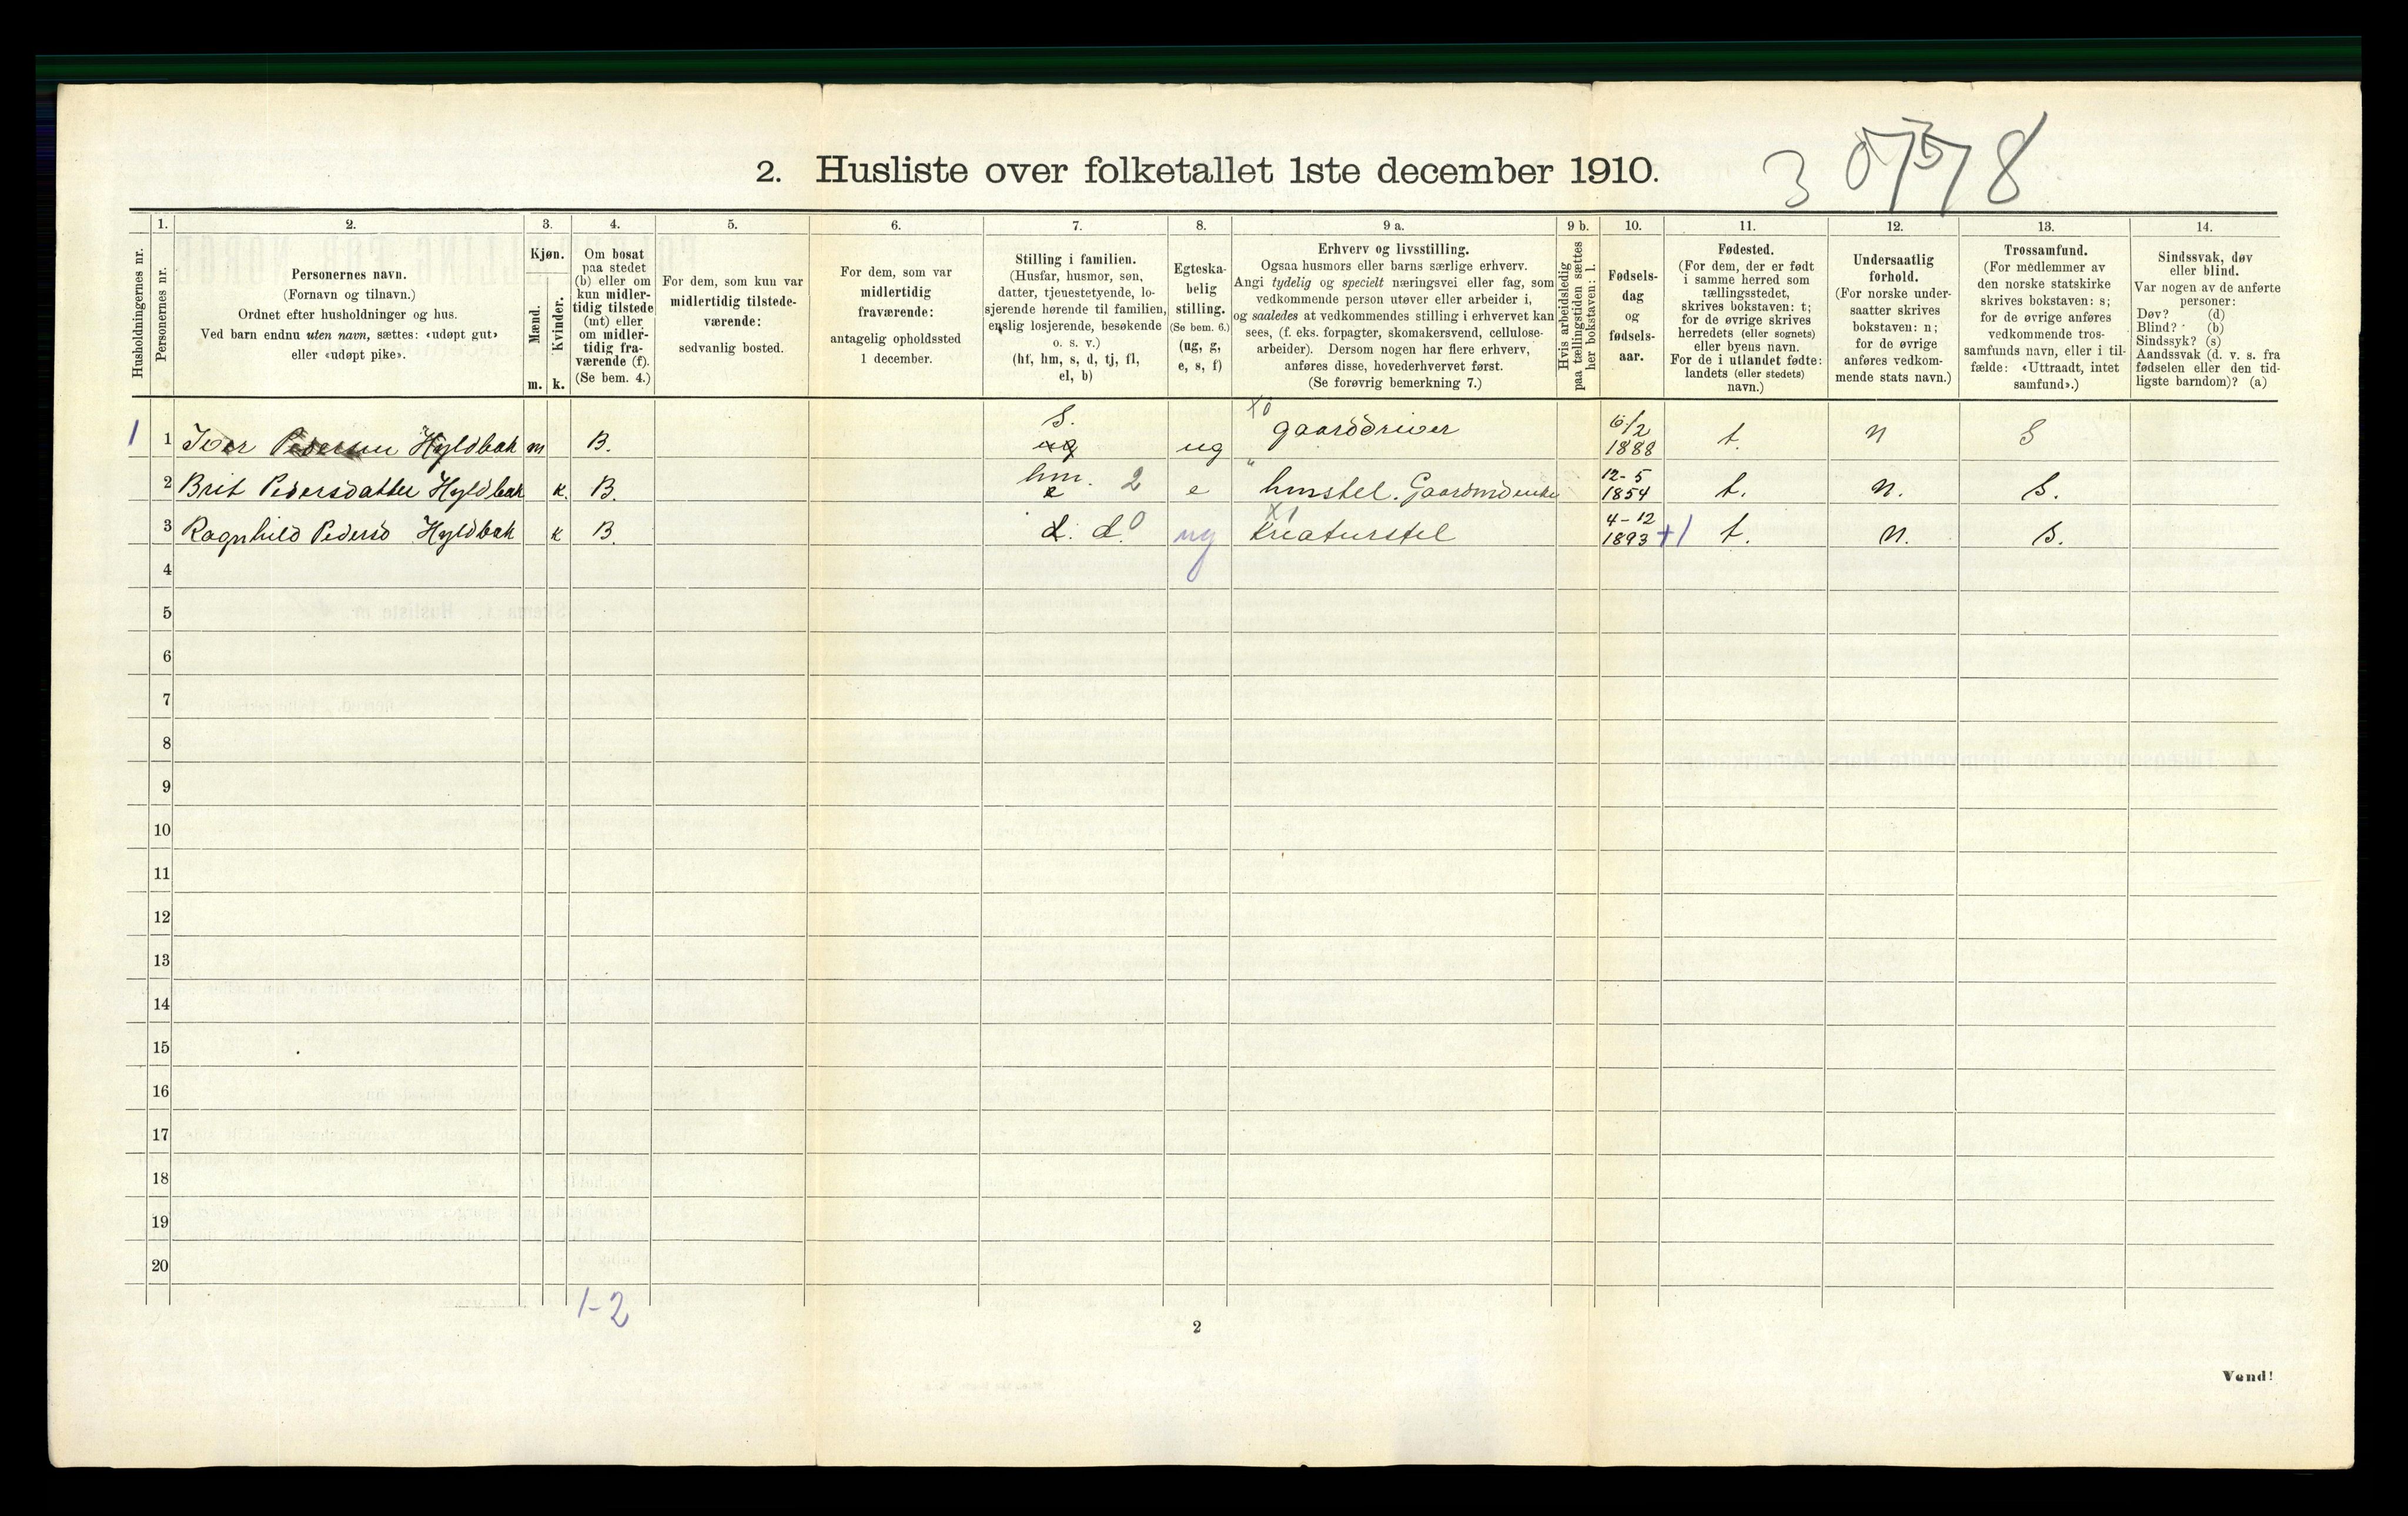 2. Husliste over folketallet 1ste december 1910.
1. 2. 3. 4. 5. 6. 7. 8. 9 a. 9 b. 10. 11. 12. 13. 14.
Husholdningernes nr.
Personernes nr.
Personernes navn.
(Fornavn og tilnavn.)
Ordnet efter husholdninger og hus.
Ved barn endnu uten navn, sættes: «udøpt gut»
eller «udøpt pike».
Kjøn.
Mænd.
Kvinder.
m. k.
Om bosat
paa stedet
(b) eller om
kun midler-
tidig tilstede
(mt) eller
om midler-
tidig fra-
værende (f).
(Se bem. 4.)
For dem, som kun var
midlertidig tilstede-
værende:
sedvanlig bosted.
For dem, som var
midlertidig
fraværende:
antagelig opholdssted
1 december.
Stilling i familien.
(Husfar, husmor, søn,
datter, tjenestetyende, lo-
sjerende hørende til familien,
enslig losjerende, besøkende
o. s. v.)
(hf, hm, s, d, tj, fl,
el, b)
Egteska-
belig
stilling.
(Se bem. 6.)
(ug, g,
e, s, f)
Erhverv og livsstilling.
Ogsaa husmors eller barns særlige erhverv.
Angi tydelig og specielt næringsvei eller fag, som
vedkommende person utøver eller arbeider i,
og saaledes at vedkommendes stilling i erhvervet kan
sees, (f. eks. forpagter, skomakersvend, cellulose-
arbeider). Dersom nogen har flere erhverv,
anføres disse, hovederhvervet først.
(Se forøvrig bemerkning 7.)
Hvis arbeidsledig
paa tællingstiden sættes
her bokstaven: l.
Fødsels-
dag
og
fødsels-
aar.
Fødested.
(For dem, der er født
i samme herred som
tællingsstedet,
skrives bokstaven: t;
for de øvrige skrives
herredets (eller sognets)
eller byens navn.
For de i utlandet fødte:
landets (eller stedets)
navn.)
Undersaatlig
forhold.
(For norske under-
saatter skrives
bokstaven: n;
for de øvrige
anføres vedkom-
mende stats navn.)
Trossamfund.
(For medlemmer av
den norske statskirke
skrives bokstaven: s;
for de øvrige anføres
vedkommende tros-
samfunds navn, eller i til-
fælde: «Uttraadt, intet
samfund».)
Sindssvak, døv
eller blind.
Var nogen av de anførte
personer:
Døv? (d)
Blind? (b)
Sindssyk? (s)
Aandssvak (d. v. s. fra
fødselen eller den tid-
ligste barndom)? (a)
1 1 Iver Pedersen Hyldbak m B. s. ug ug gaardsdriver 6/2 1888 t. n S
2 Brit Pedersdatter Hyldbak k. B. hm. e 2 e husstel. 12-5 1854 t. n. s.
3 Ragnhild Pedersd Hyldbak k B d. d. 0 ug X1 Kreaturstel 4-12 1893 +1 t. n. s.
4
5
6
7
8
9
10
11
12
13
14
15
16
17
18
19
20
1-2
2
Vend!